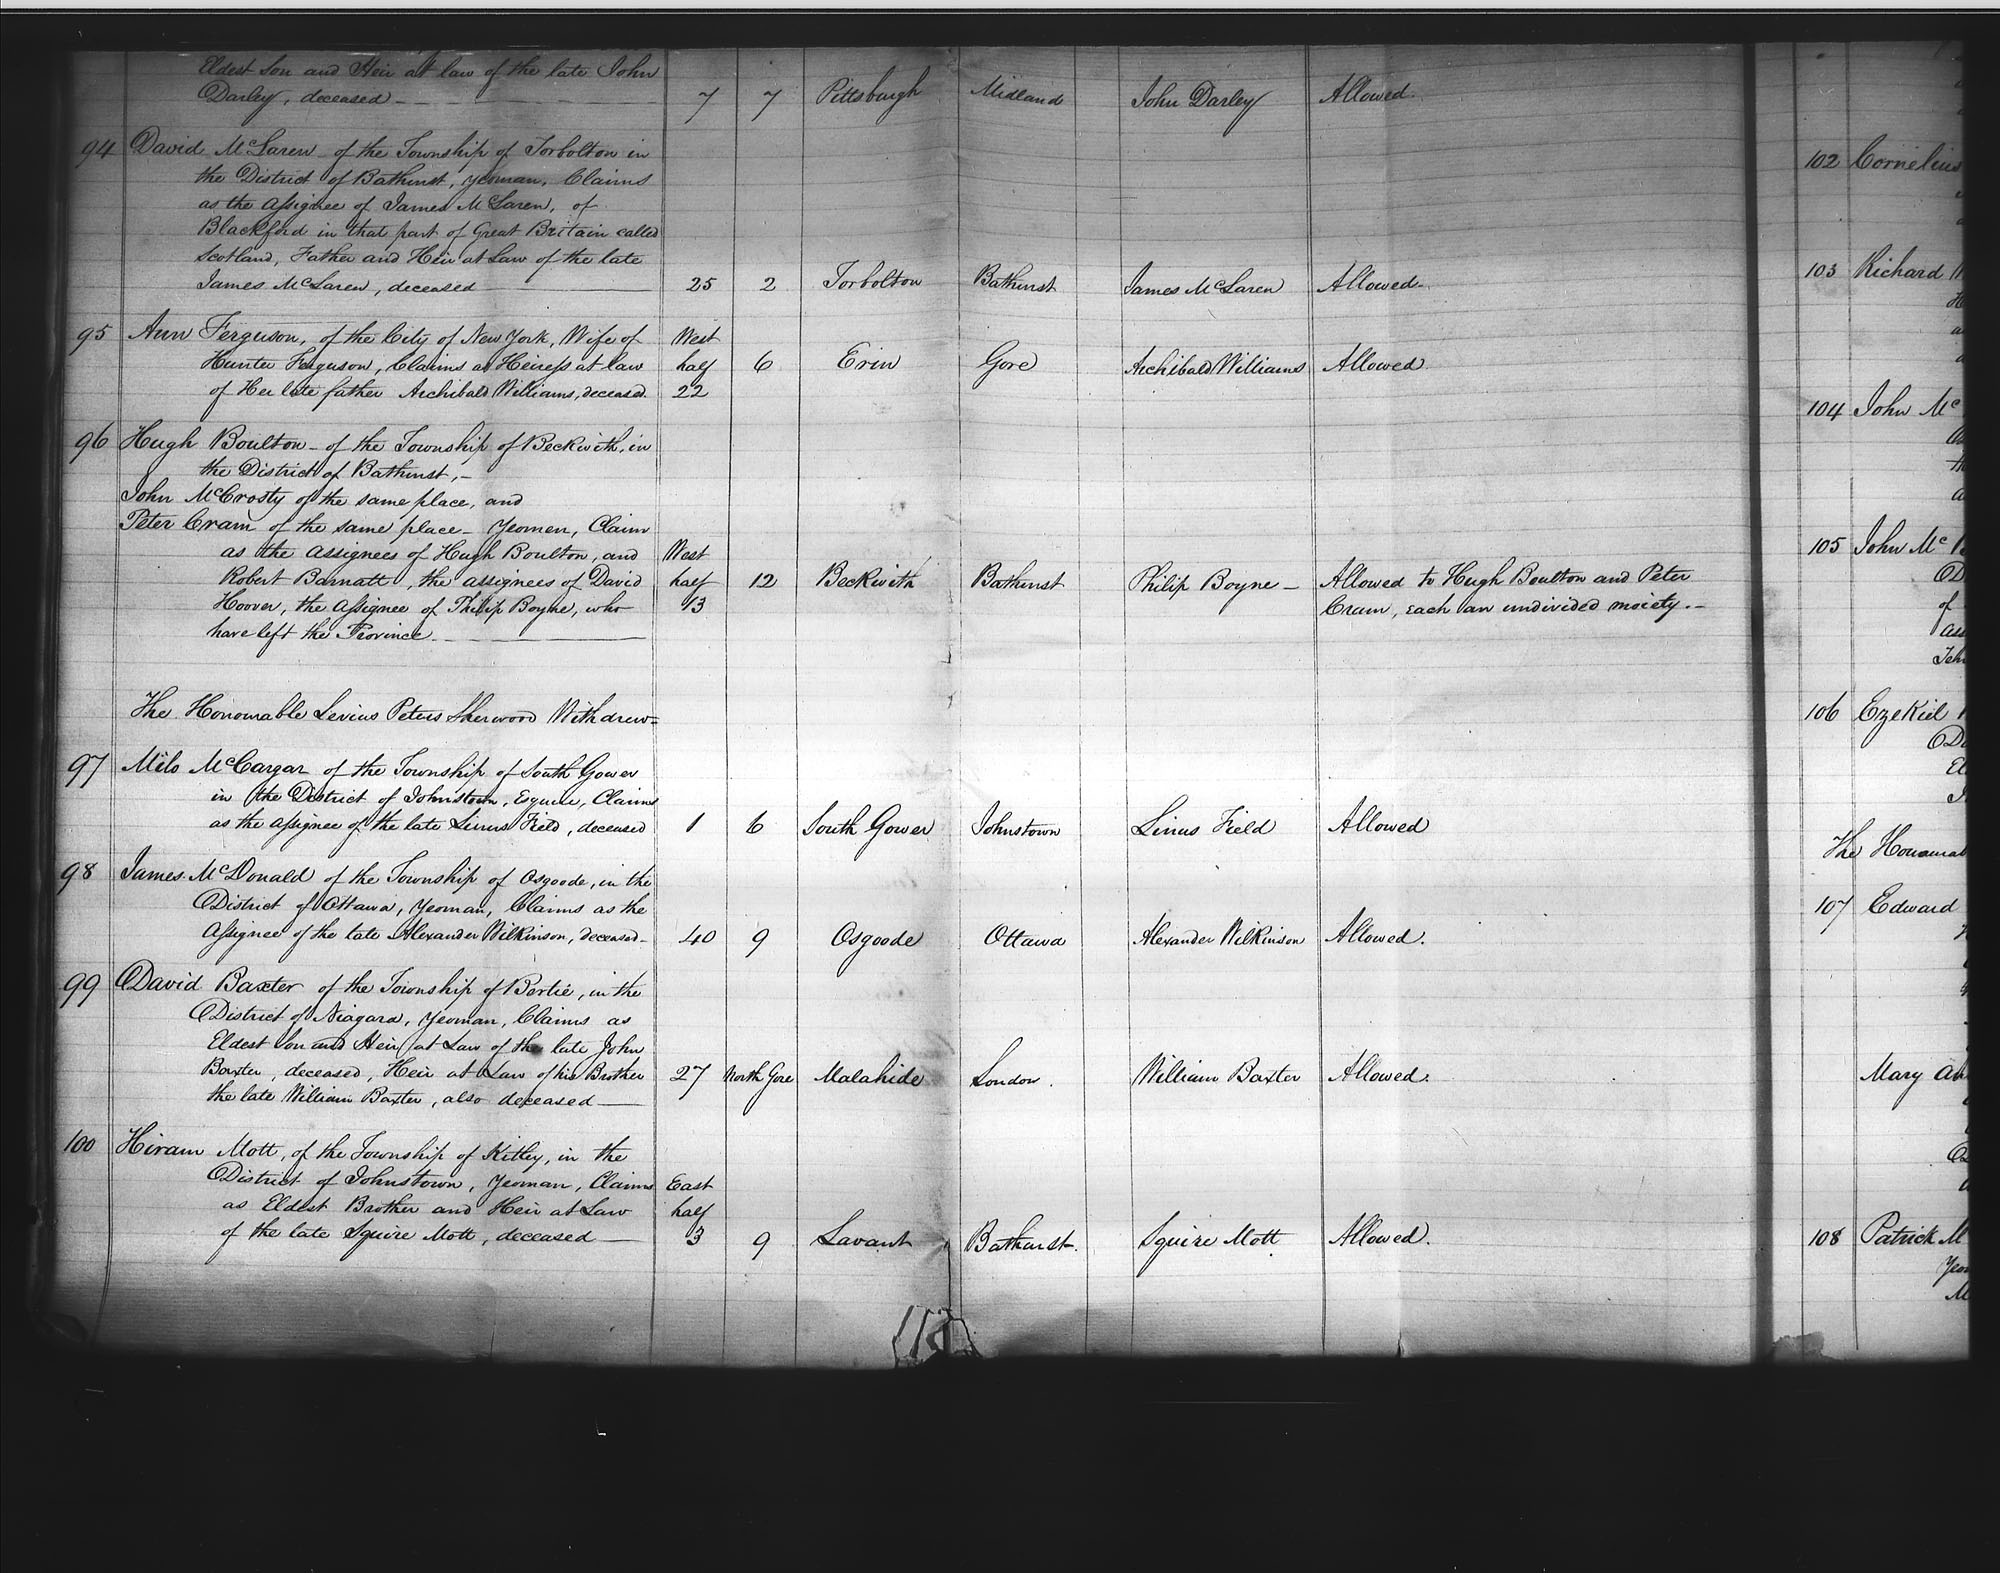 Eldest Son and Heir at law of the late John
Darley, deceased - 7 7 Pittsburgh Midland John Darley Allowed.
94 David McLaren of the Township of Torbolton in
the District of Bathurst, yeoman, Claims
as the Assignee of James McLaren, of
Blackford in that part of Great Britain called
Scotland, Father and Heir at Law of the late
James McLaren, deceased 25 2 Torbolton Bathurst James McLaren Allowed.
95 Ann Ferguson, of the City of New York, Wife of West
Hunter Ferguson, Claims as Heiress at law half 6 Erin Gore Archibald Williams Allowed
of Her late father Archibald Williams, deceased. 22
96 Hugh Boulton - of the Township of Beckwith, in
the District of Bathurst, -
John McCrosty of the same place, and
Peter Cram of the same place - Yeomen, Claim
as the assignees of Hugh Boulton, and West
Robert Barnatt, the assignees of David half 12 Beckwith Bathurst Philip Boyne - Allowed to Hugh Boulton and Peter
Hoover, the Assignee of Philip Boyne, who 13 Cram, each an undivided moiety. -
have left the Province.
The Honourable Levius Peters Sherwood Withdrew =
97 Milo McCargar of the Township of South Gower
in the District of Johnstown, Esquire, Claims
as the Assignee of the late Linus Field, deceased 1 6 South Gower Johnstown Linus Field Allowed
98 James McDonald of the Township of Osgoode, in the
District of Ottawa, Yeoman, Claims as the
Assignee of the late Alexander Wilkinson, deceased - 40 9 Osgoode Ottawa Alexander Wilkinson Allowed.
99 David Baxter of the Township of Bertie, in the
District of Niagara, Yeoman, Claims as
Eldest Son and Heir at Law of the late John
Baxter, deceased, Heir at Law of his Brother 27 North Gore Malahide London. William Baxter Allowed.
the late William Baxter, also deceased
100 Hiram Mott, of the Township of Kitley, in the
District of Johnstown, Yeoman, Claims East
as Eldest Brother and Heir at Law half
of the late Squire Mott, deceased 3 9 Lavant Bathurst. Squire Mott Allowed.
102 Cornelius
103 Richard
104 John Mc
105 John Mc
of
106 Ezekiel
The
107 Edward
Mary
108 Patrick